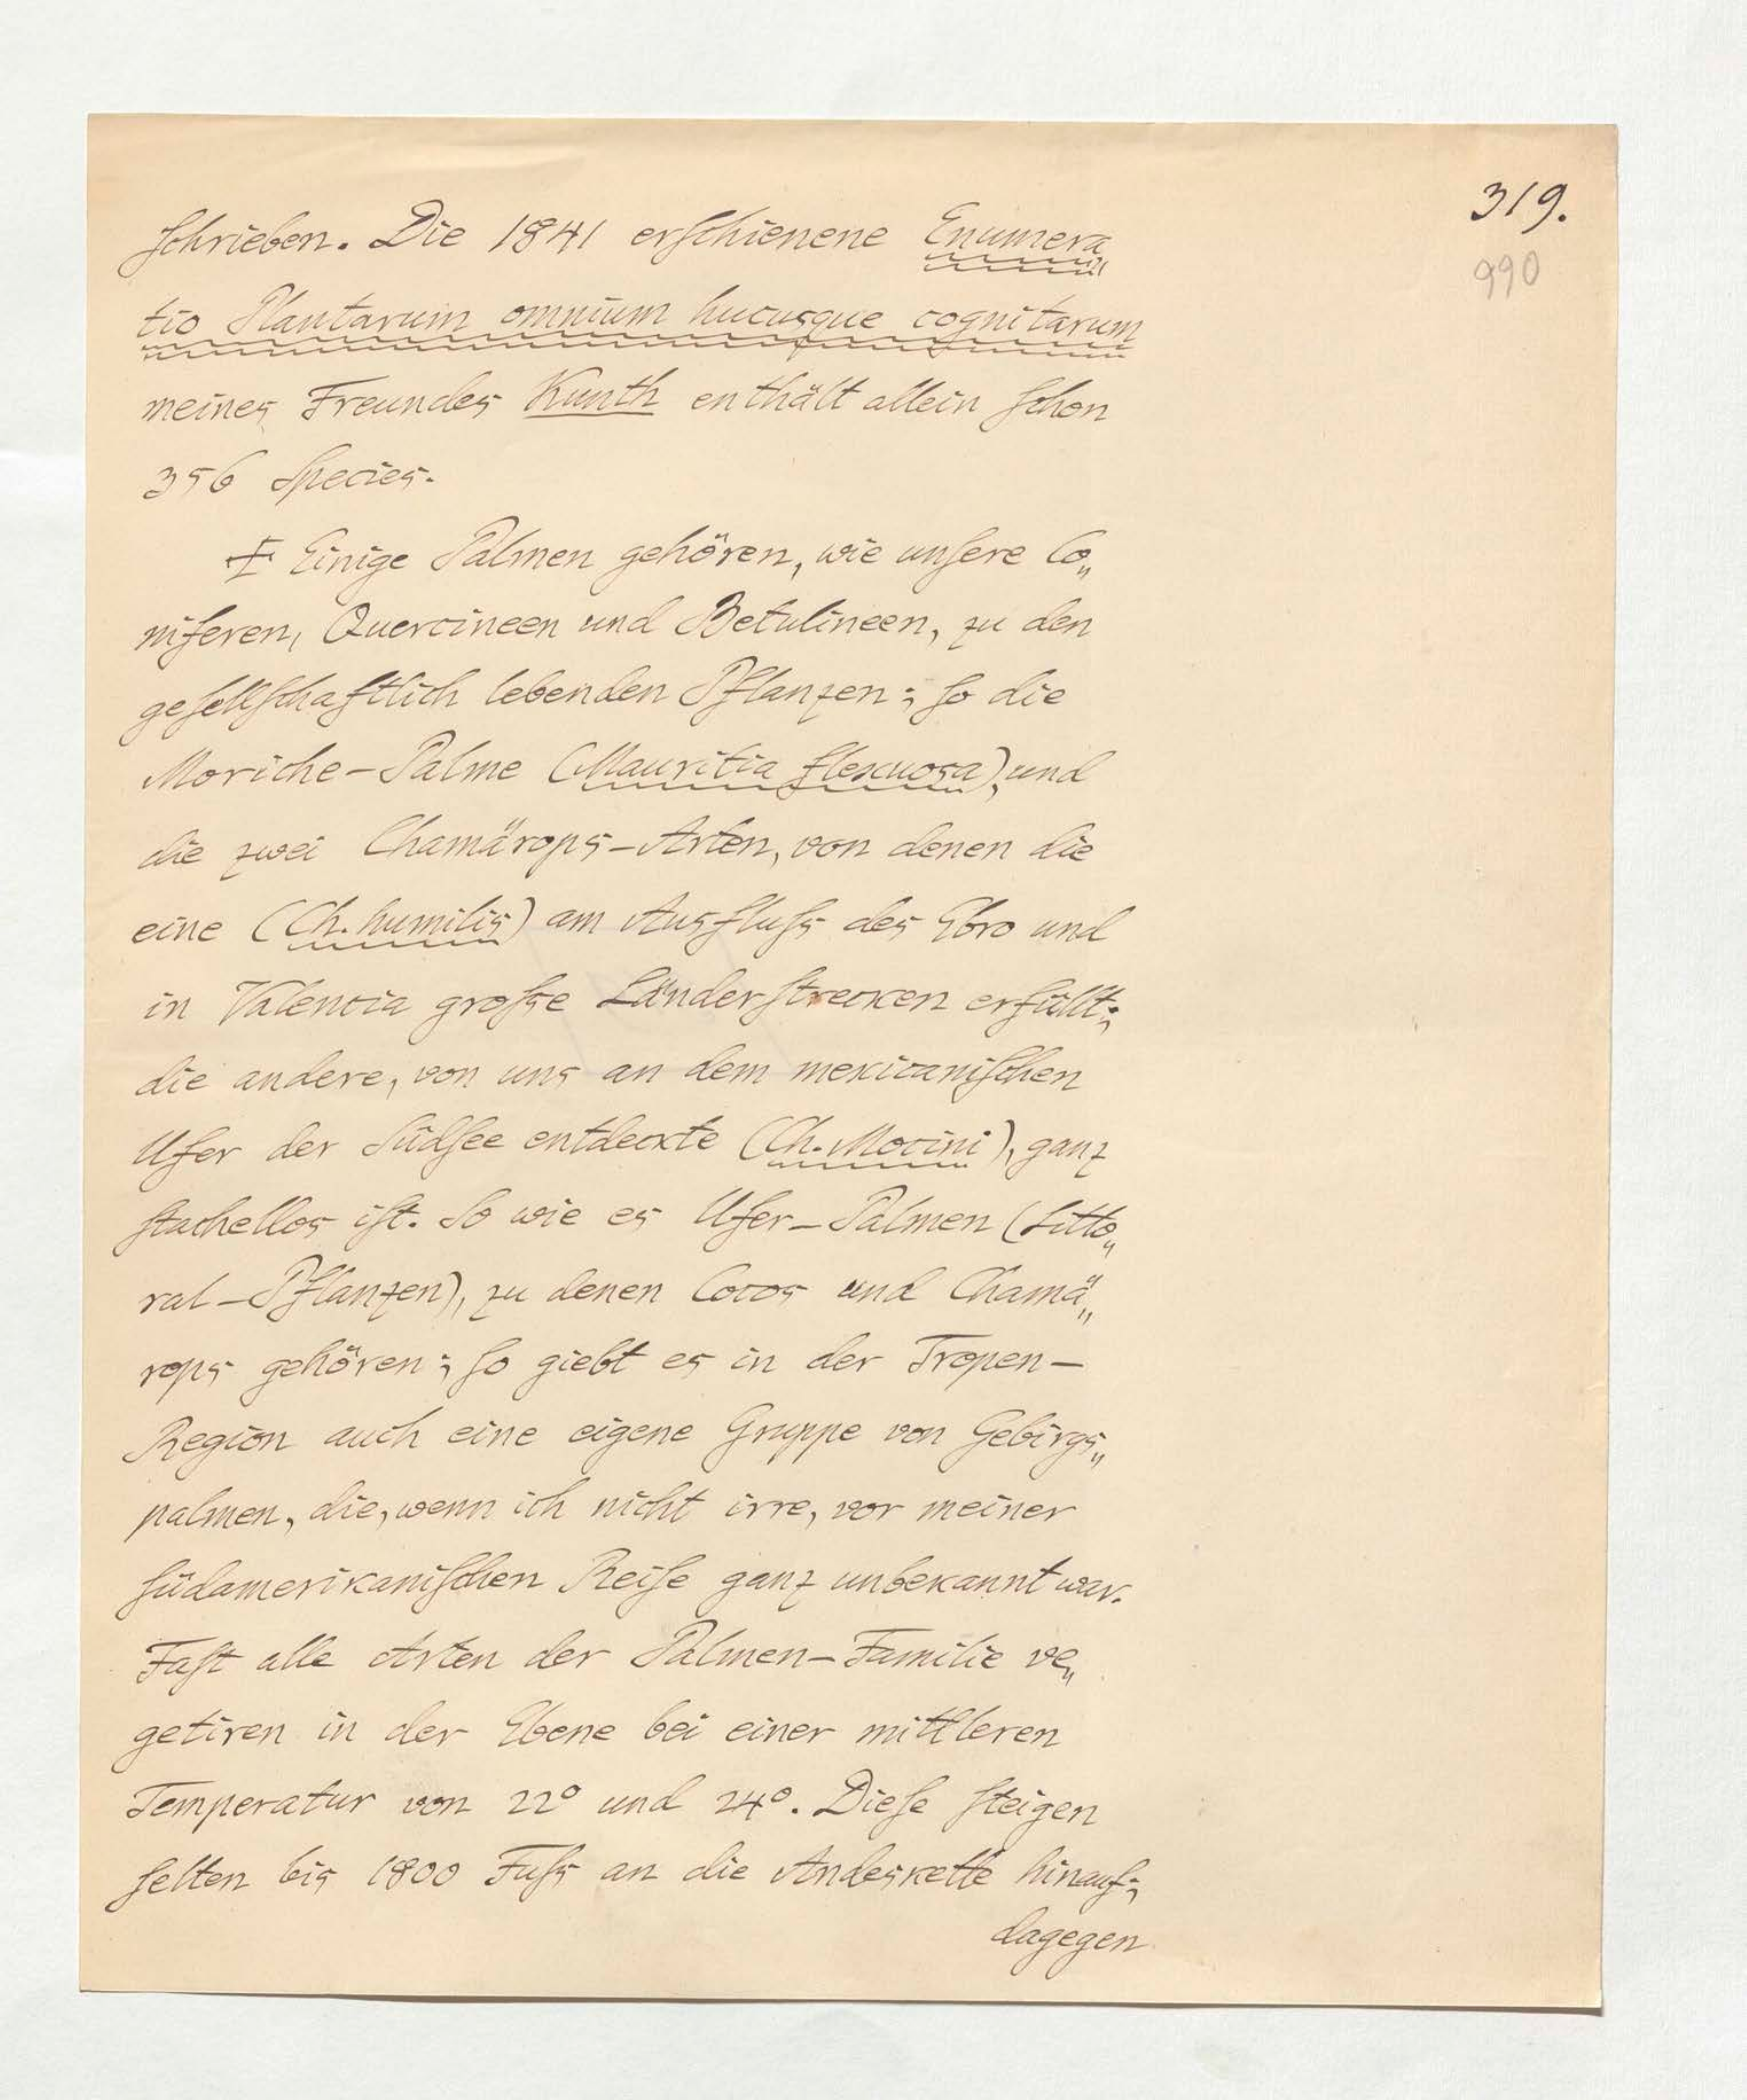 319.
990
schrieben. Die 1841 erschienene Enumera„
tio Plantarum omnium hucusque cognitarum
meines Freundes Kunth enthält allein schon
356 Species.
I Einige Palmen gehören, wie unsere Co„
niferen, Quercineen und Betulineen, zu den
gesellschaftlich lebenden Pflanzen; so die
Moriche-Palme (Mauritia flexuosa), und
die zwei Chamärops-Arten, von denen die
eine (Ch. humilis) am Ausfluss des Ebro und
in Valencia grosse Länderstrecken erfüllt;
die andere, von uns an dem mexicanischen
Ufer der Südsee entdeckte (Ch. Mocini), ganz
stachellos ist. So wie es Ufer-Palmen (Litto„
ral-Pflanzen), zu denen Cocos und Chamä„
rops gehören; so giebt es in der Tropen-
Region auch eine eigene Gruppe von Gebirgs„
palmen, die, wenn ich nicht irre, vor meiner
südamerikanischen Reise ganz unbekannt war.
Fast alle Arten der Palmen-Familie ve„
getiren in der Ebene bei einer mittleren
Temperatur von 22° und 24°. Diese steigen
selten bis 1800 Fuss an die Andeskette hinauf;
dagegen